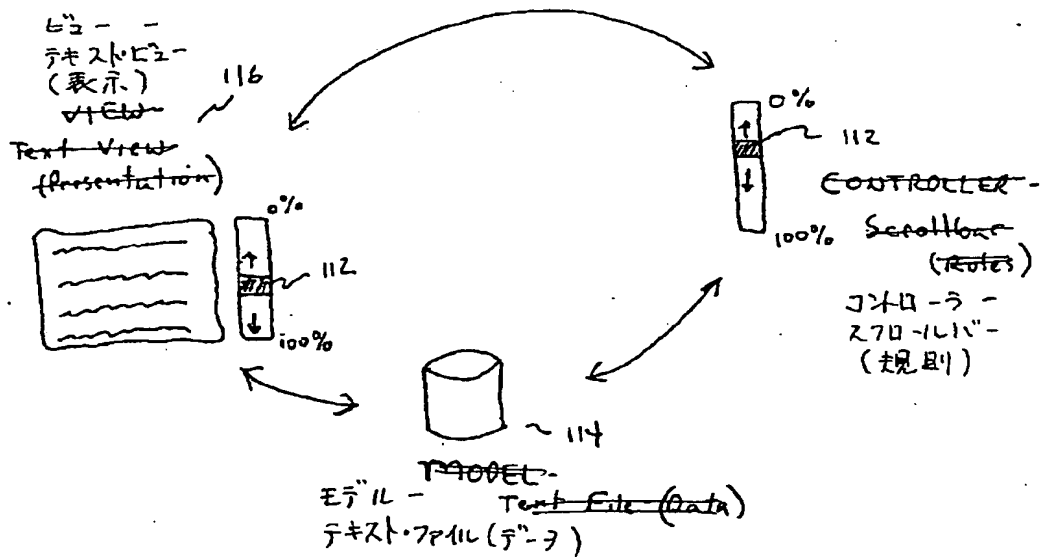 ビュー -
テキストビュー
(表示)
VIEW
Text View
(Presentation)
116
0%
112
100%
0%
112
100%
CONTROLLER -
Scrollbar
(Rules)
コントローラ -
スクロールバー
(規則)
114
MODEL -
Text File (Data)
モデル -
テキスト・ファイル(データ)